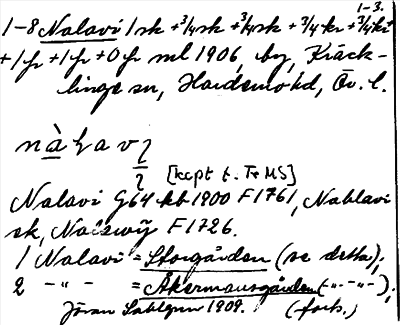 1-3.
1-8 Nalavi 1 sk + 3/4 sk + 3/4 sk + 3/4 kr + 3/4 kr
+ 1 fr + 1 fr + 0 fr ml 1906, by, Kräck-
linge sn, Hardemo hd, Ör. l.
nàlav
[kcpt t. Fr MS]
Nalavi G64 kb 1800 F1761, Nahlavi
sk, F1726.
1 Nalavi = Storgården (se detta);
2 -"- = Åkermansgården (-"-"-);
Jöran Sahlgren 1909. (forts.)